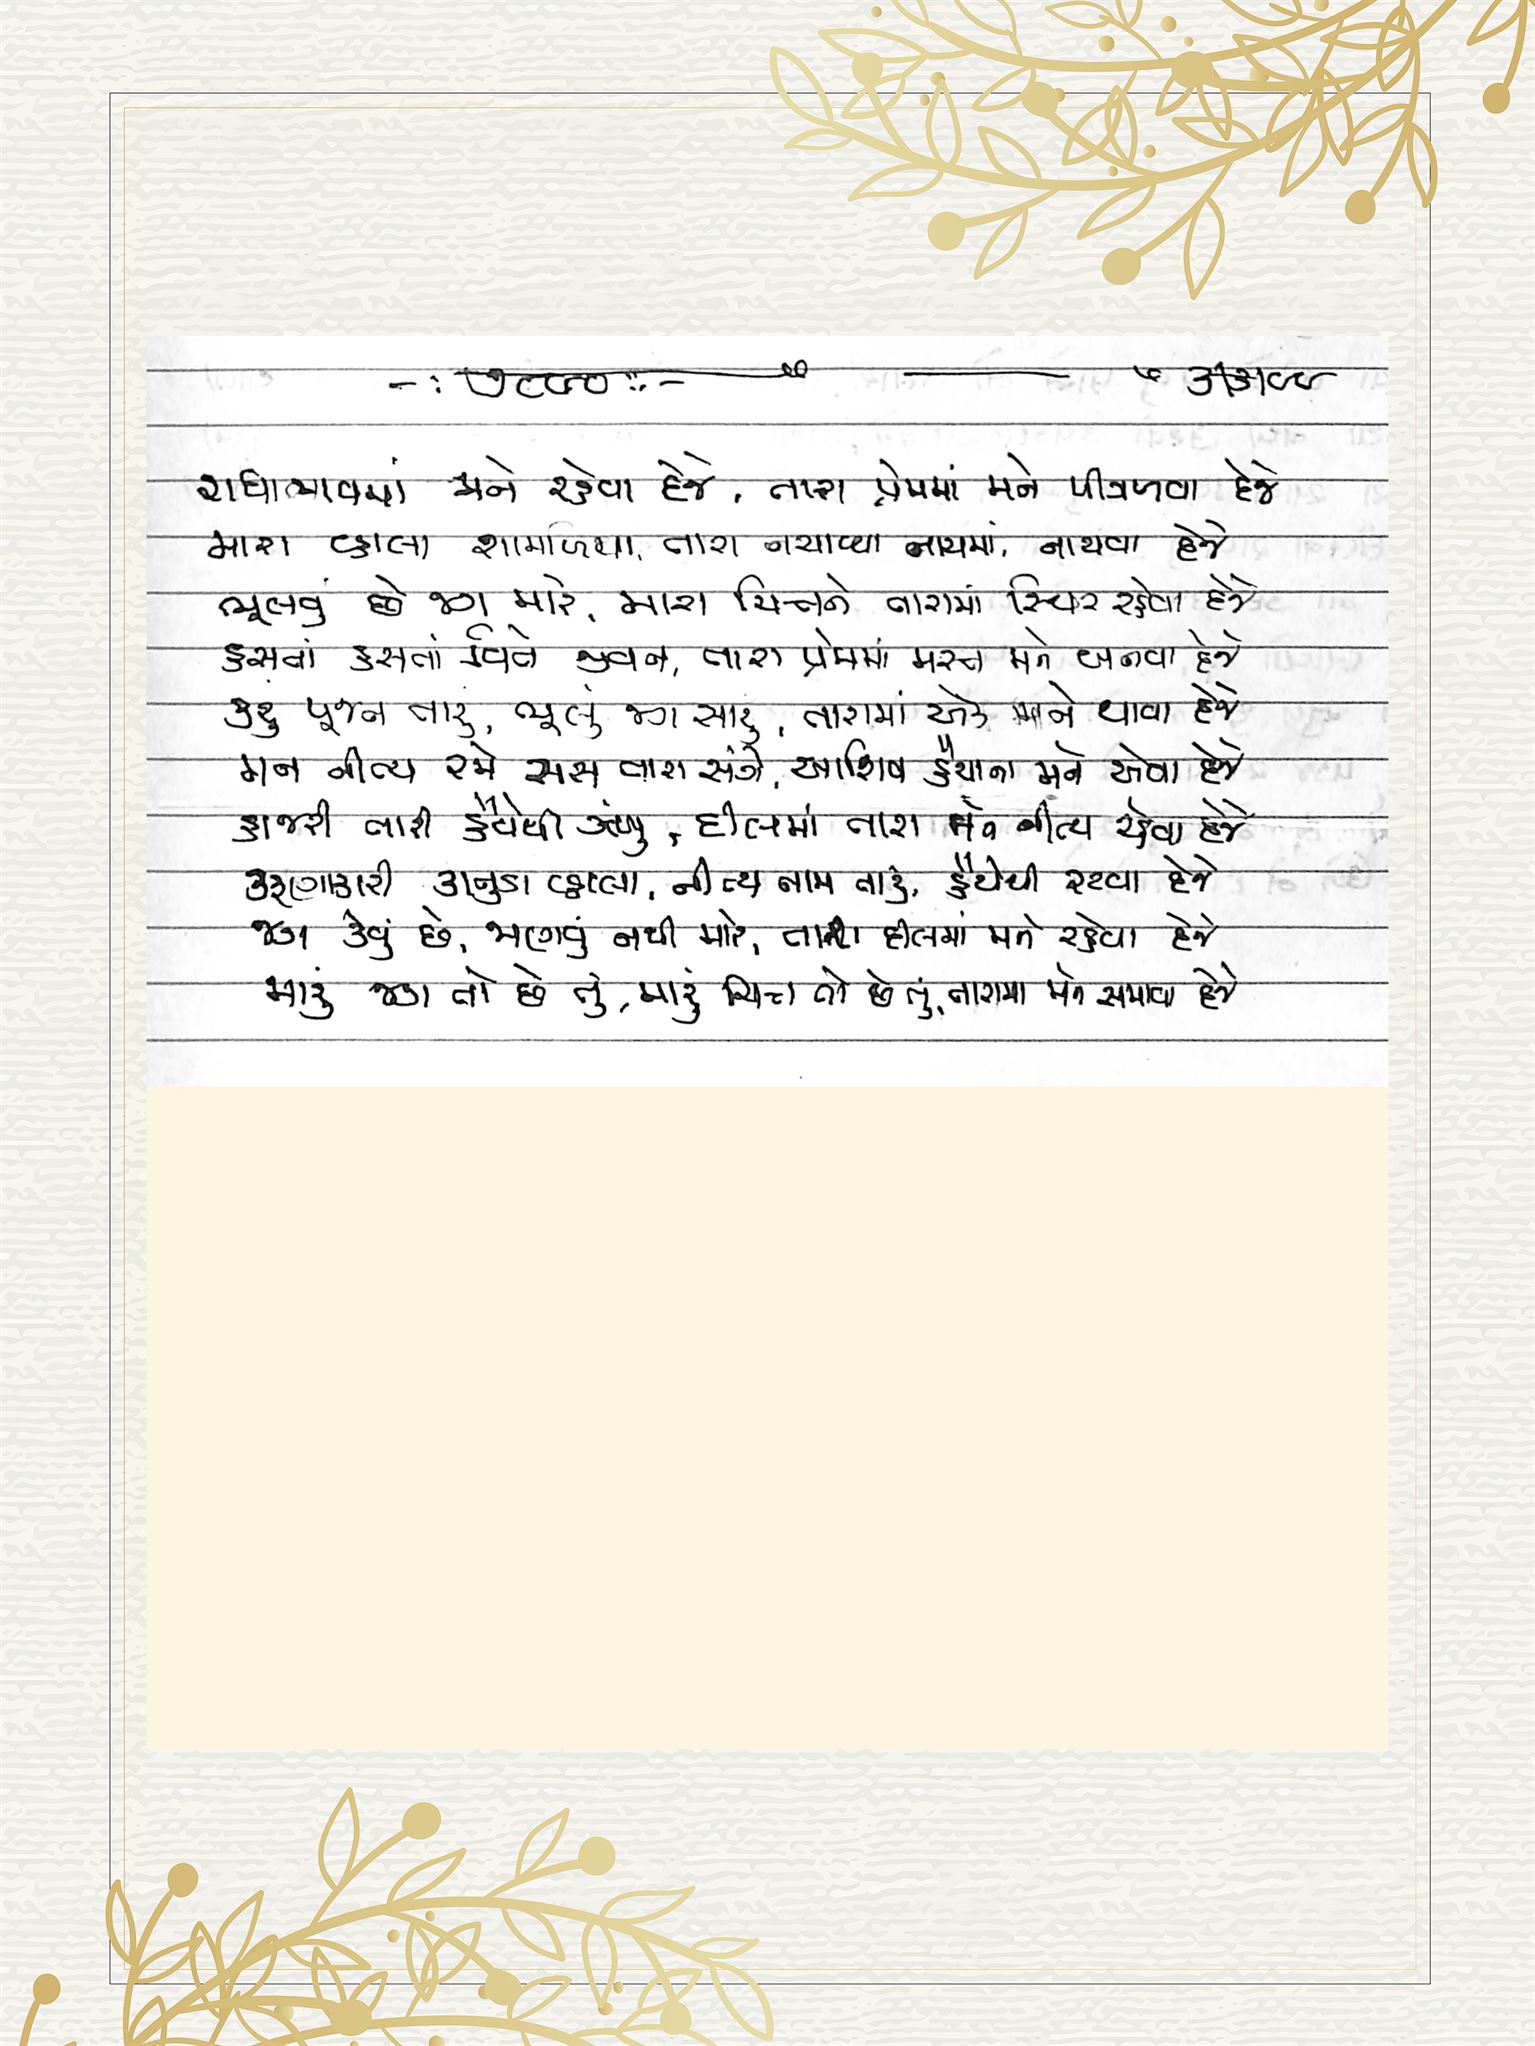 રાધાભાવમાં મને રહેવા દેજે, તારા પ્રેમમાં મને પીગળવા દેજે
મારા વ્હાલા શામળિયા, તારા નચાવ્યા નાચમાં, નાચવા દેજે
ભૂલવું છે જગ મારે, મારા ચિત્તને તારામાં સ્થિર રહેવા દેજે
હસતાં હસતાં વિતે જીવન, તારા પ્રેમમાં મસ્ત મને બનવા દેજે
કરું પૂજન તારું, ભૂલું જગ સારું, તારામાં એક મને થાવા દેજે
મન નીત્ય રમે રાસ તારા સંગે, આશિષ હૈયાના મને એવા દેજે
હાજરી તારી હૈયેથી ઝંખુ, દીલમાં તારા મને નીત્ય રહેવા દેજે
કરૂણાકારી કાનુડા વ્હાલા, નીત્ય નામ તારું, હૈયેથી રટવા દેજે
જગ કેવું છે, જાણવું નથી મારે, તારા દીલમાં મને રહેવા દેજે
મારું જગ તો છે તું, મારું ચિત્ત તો છે તું, તારામાં મને સમાવા દેજે